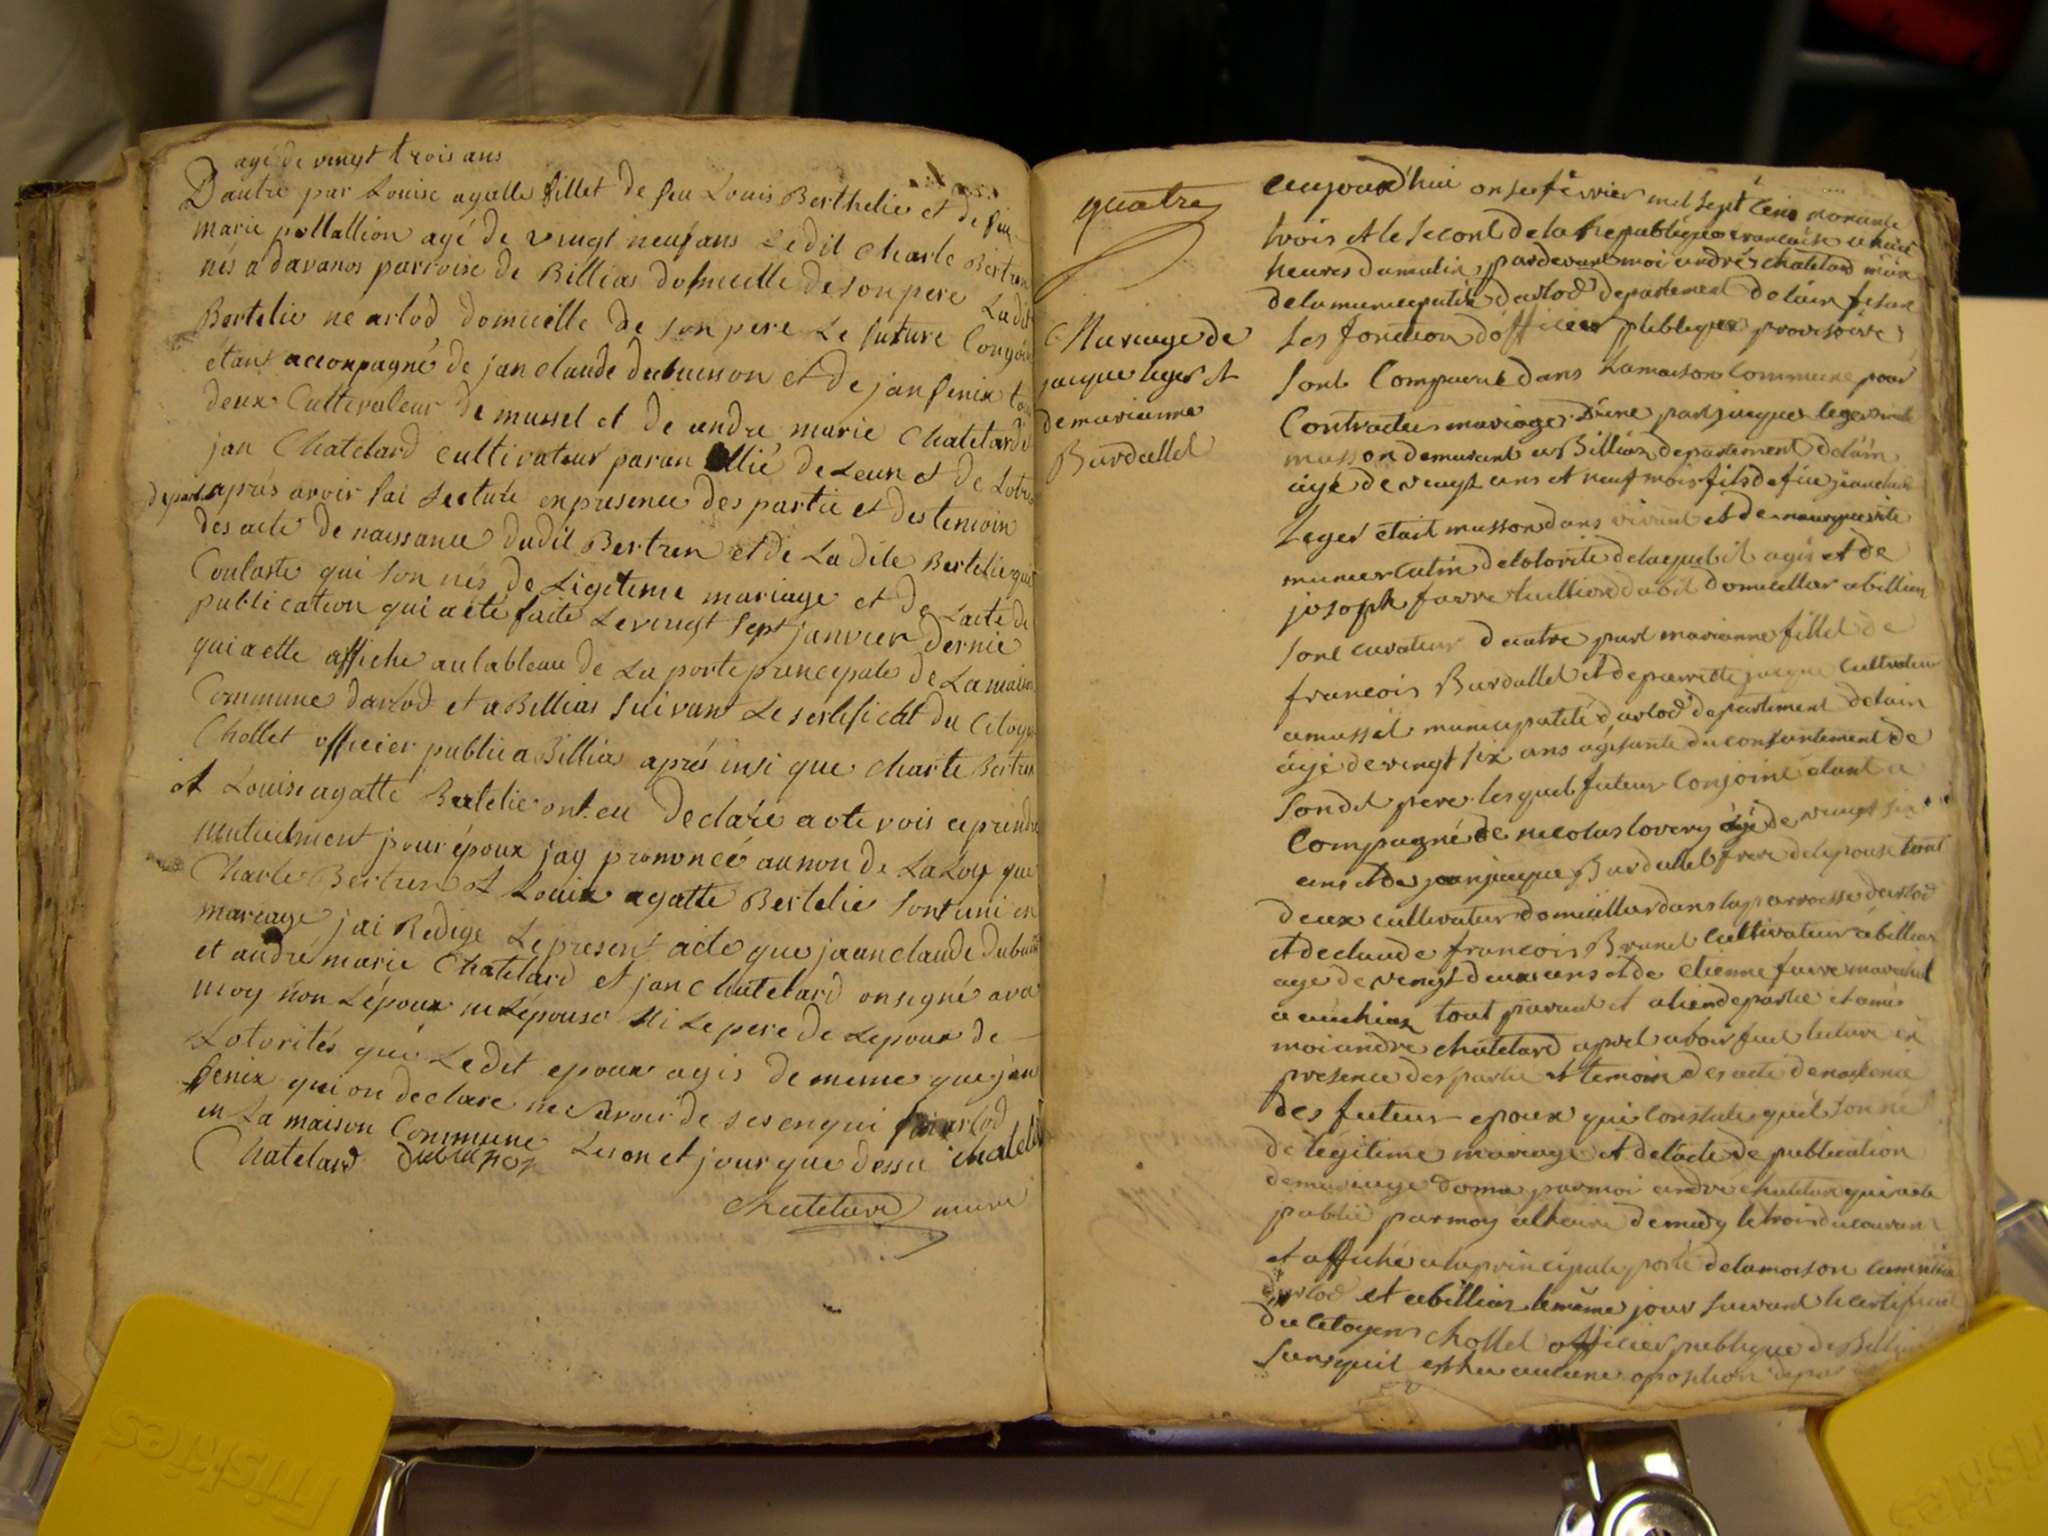 agé de vingt trois ans
Dautre par Louise agatte fillet de feu Louis Berthelie et de feu
marie pellallion agé de vingt neuf ans Ledit Charle Bertren
nés a davanos parroise de Billias domicille de son pere Ladit
Bertelie ne arlod domicille de son pere Le future Conjoin
étans accompagné de jan claude dubuisson et de jan fenix tou
deux Cultivateur de mussel et de andre marie Chatelard
jan Chatelard cultivateur paran allié de Leun et de Lotre
depart aprés avoir fai Lecture en presence des partie et des temoin
des acte de naissance dudit Bertren et de La dite Bertelie qui
Contaste qui son nés de Légitime mariage et de Lacte de
publication qui a été faite Le vingt sept janvier dernie
qui a ette affiche au tableau de La porte principale de La maison
Commune darlod et a Billias suivan Le sertificat du Citoyen
Chollet officier public a Billias aprés insi que Charle Bertren
et Louise agatte Bertelie ont eu Declaré a ote vois a prendre
mutuelment pour époux jay prononcé au non de La Loy que
Charle Bertren et Louise agatte Bertelie sont uni en
mareage jai Redige Le present acte que jean claude dubuisson
et andré marie Chatelard et jan Chatelard on signé avec
moy non Lépoux ni Lépouse Ni Le pere de Lepoux de
Lotorités que Le dit epoux agis de meme que jan
fenix qui on declare ne savoir de ses enqui fai arlod
en La maison Commune Les an et jour que dessu chatelard
Chatelard Dubuisson
Chatelard maire
quatre
Mariage de
jacque leger et
de marianne
Burdallet
aujourd'hui onse février mil sept cens nonante
trois et le second de la Republique francaise a huit
heures du matin, par devant moi andré chatelard maire
de la municipalité darlod departement de lain fesant
les fonction dofficier publique provisoire
sont Comparut dans La maison Commune pour
Contracter mariage D'une part jacque leger
musson demurant a Billias departement de lain
agé de vingt ans et neuf mois fils de feu jean
Leger etait musson dans vivant et de marguerite
de lotorité de laquel il agis et de
joseph favre domicillier a billias
sont curateur dautre part marianne fillet de
francois Burdallet et de pierrette jacque Cultivateur
a mussel municipalité darlod departement de lain
agé de vingt six ans agisante du consantement de
sondit pere lesquel futeur Conjoint étant a
Compagné de nicolas lovery agé de vingt six
ans et de jean jacque Burdallet frere de lepouse tout
deux cultivateur domicillier dans la parroisse darlod
et de claude francois Brunet Cultivateur a billias
age de vingt deux ans et de etienne favre
tout parant et de partie et ami
moi andré chatelard apret avoir fait lecture en
presence des partie et temoin des acte de nesance
des futeur epoux qui Constate quil son né
de légitime mariage et delacte de publication
de mariage donné par moi andré chatelard qui a ete
publié par moy a lheure de midy le trois du courant
et affiché a la principale porte de la maison commune
darlod et a billias le même jour suivant le certificat
du citoyen chollet officier publique de Billias
sans quil est hu aucune oposition